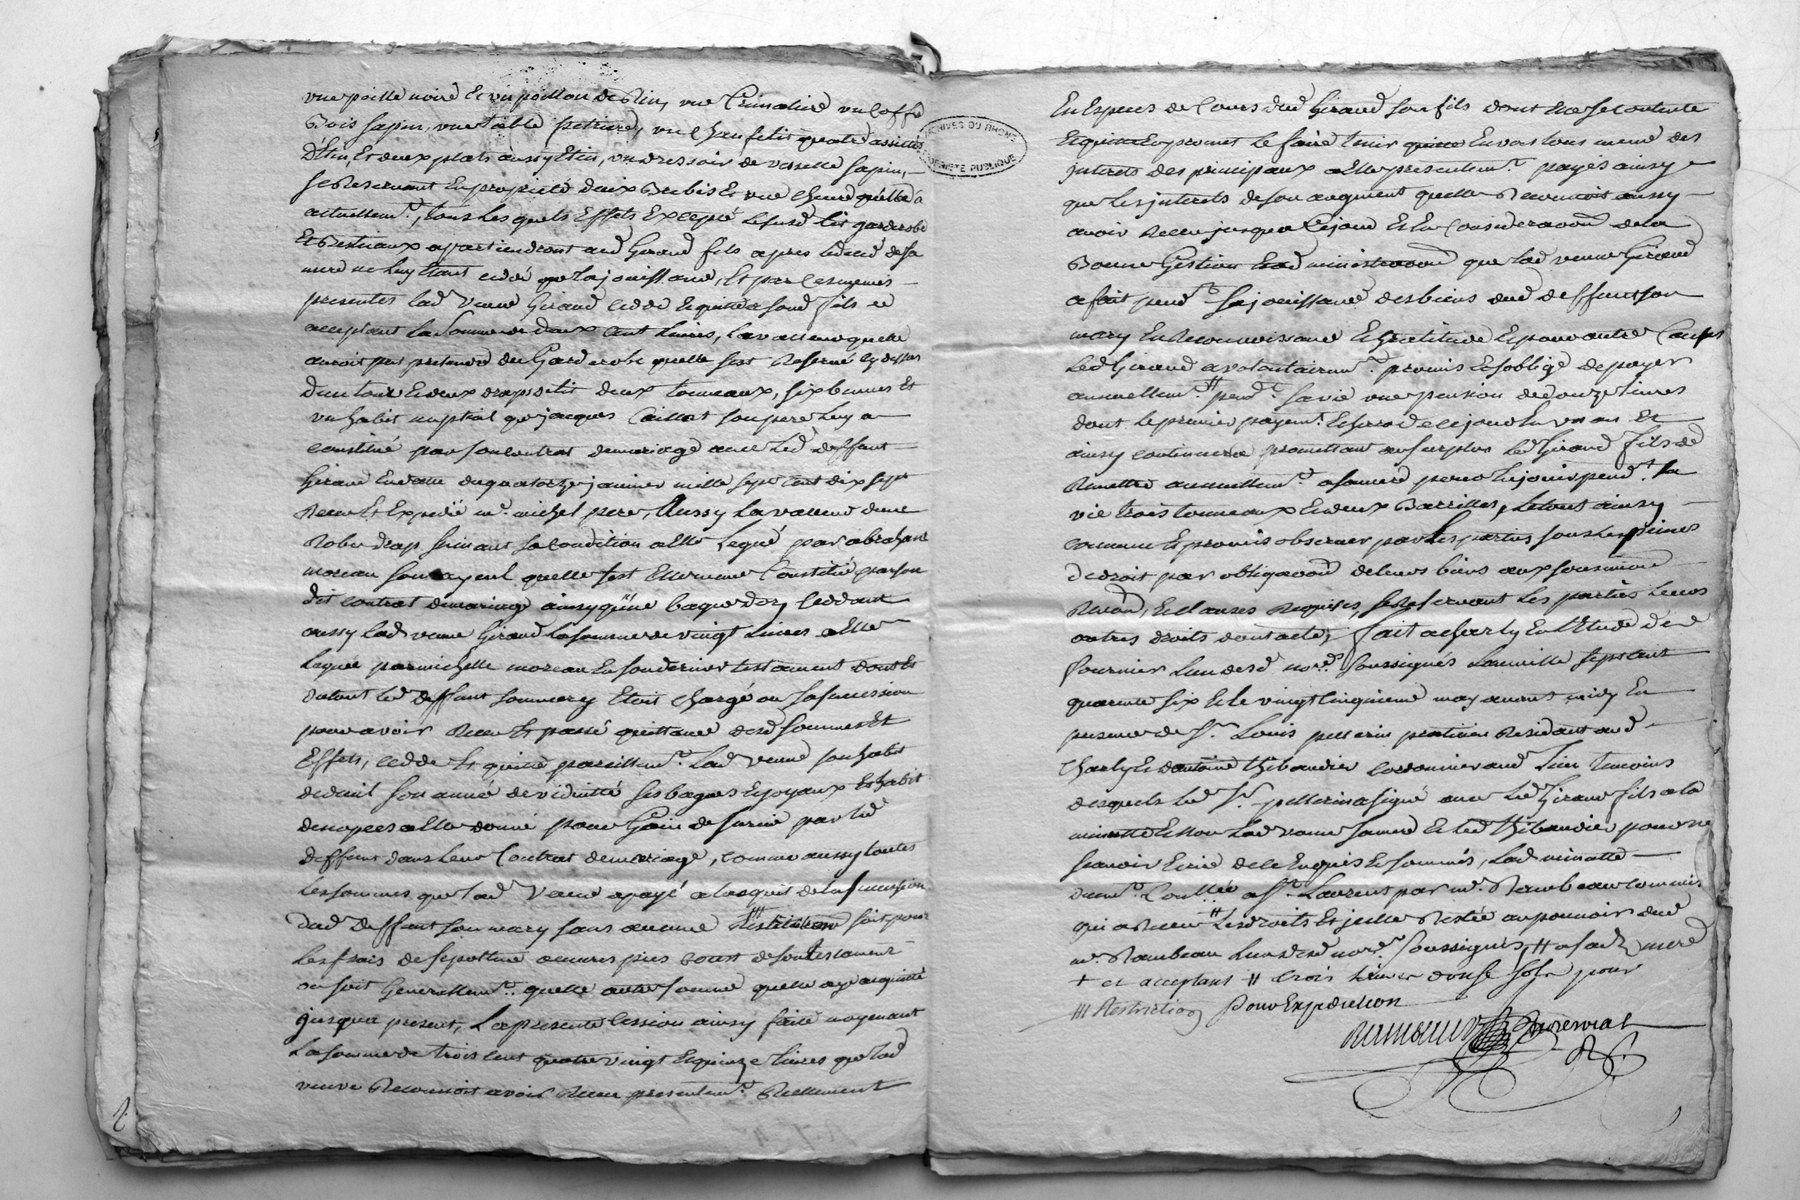 une poille noire et un poillon de
Bois sapin, une table petrière, un chanfelit quatre assiettes
D'Etin, Et deux plats aussy Etin, un dressoir de vaselle sapin,
se Reservant En proprieté deux Brebis Et une chevre qu'elle a
actuellemt, tous Lesquels Effets Excepté lit garderobe
Et Bestiaux apartiendront aud Giraud fils apres le deces de sa
mere ne luy Etant cedé que la jouissance, Et par les memes
presentes lad veuve Giraud cedde Et quitte a sond fils
acceptant La Somme de deux cent Livres, La valleur quelle
auroit peu pretendre du Garderobe quelle s'est Reservé cy dessus
deux draps de lit deux tonneaux, six bennes Et
un habit nuptial que jacques Caillat son pere luy a
constitué par son contrat de mariage avec Led deffunt
Giraud En datte du quatorze janvier mille sept cent dix sept
Receu Et Expedié me michel pere, Aussy La valleur d'une
Robe drap suivant sa condition a Elle Legué par abraham
moreau son ayeul quelle s'est Elle meme Constitué par son
dit contrat de mariage ainsy qu'une bague d'or, Ceddant
aussy Lad veuve Giraud La somme de vingt Livres a Elle
Leguée par michelle moreau En son dernier testament dont Et
du tout led deffunt son mary Etoit chargé ou sa succession
pour avoir Receu Et passé quittance desd sommes Et
Effets, cedde Et quitte pareillemt Lad veuve son habit
de deuil son année de viduitté ses bagues Et joyaux Et habit
de nopces a Elle donné pour Gain de survie par led
deffunt dans leur Contrat de mariage, comme aussy toutes
Les sommes que lad Veuve a payé a lacquit de la succession
dud deffunt son mary sans aucune Restriction soit pour
Les frais de sepulture œuvres pies Coust de son testament
ou soit Generallemt quelle autre somme quelle aye acquitté
jusqua present, La presente Cession ainsy faite moyenant
La somme de trois cent quatre vingt Et quinze livres que lad
veuve Reconnoit avoir Receu presentemt Reellement
ARCHIVES DU RHONE
PROPRIETE PUBLIQUE
En Especes de Cours dud Giraud son fils dont Elle se contente
Et quitte Et promet Le faire tenir quitte Envers tous meme des
Interets des principaux a Elle presentemt payés ainsy
que Les interets de son augment quelle Reconnoit aussy
avoir Receu jusqua Ce jour Et En Consideraon de la
Bonne Gestion Et administraon que lad veuve Giraud
a fait pendt sa jouissance des biens dud deffunt son
mary En Reconnoissance Et Gratitude Et pour autre Causes
Led Giraud a volontairemt promis Et s'oblige de payer
annuellemt pendt sa vie une pension de douze livres
dont le premier payemt Echerra de ce jourdhuy un an Et
ainsy continuera promettant au surplus Led Giraud fils de
Remettre annuellemt a sa mere pour En jouir pendt sa
vie trois tonneaux Et deux Barrilles, Le tout ainsy
convenu Et promis observer par Les parties sous Les peines
de droit par obligaon de leurs biens aux soumission
Renon, Et clauses Requises, se Reservant Les parties Leurs
autres droits dont acte, fait a charly En L'Etude de
fournier L'un desd nores soussignés L'an mille sept cent
quarente six Et le vingt cinquieme may avant midy En
presence de Sr Louis pellerin praticien Residant aud
charly Et d'antoine thibaudier cordonnier aud Lieu temoins
desquels led Sr pellerin a signé avec Led Giraud fils a la
minutte Et non Lad veuve sa mere Et led thibaudier pour ne
scavoir Ecrire de ce Enquis Et sommés, Lad minutte
deumt Conllée a St Laurent par mr Rambeau commis
qui a Receu # Les droits Et jcelle Restée au pouvoir dud
me Rambeau L'un desd nores soussignés, # a sad mere
+ et acceptant # trois livres douse sols pour
/// Restriction Pour Expedition